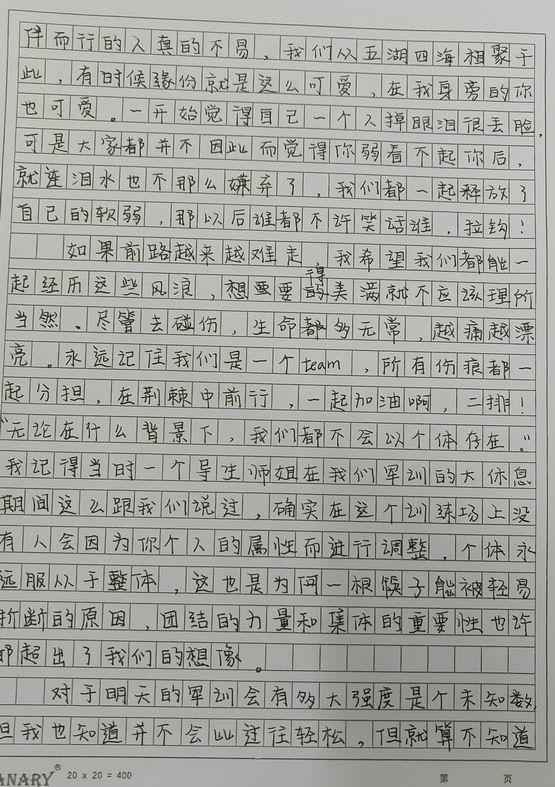 伴而行的人真的不易，我们从五湖四海相聚于
此，有时候缘份就是这么可爱，在我身旁的你
也可爱。一开始觉得自己一个人掉眼泪很丢脸，
可是大家都并不因此而觉得你弱看不起你后，
就连泪水也不那么嫌弃了，我们都一起释放了
自己的软弱，那以后谁都不许笑话谁，拉钩！
如果前路越来越难走，我希望我们都能一
起经历这些风浪，想要得美满就不应该理所
当然。尽管去碰伤，生命都多无常，越痛越漂
亮。永远记住我们是一个team，所有伤痕都一
起分担，在荆棘中前行，一起加油啊，二排！
“无论在什么背景下，我们都不会以个体存在。”
我记得当时一个导生师姐在我们军训的大休息
期间这么跟我们说过，确实在这个训练场上没
有人会因为你个人的属性而进行调整，个体永
远服从于整体，这也是为何一根筷子能被轻易
折断的原因，团结的力量和集体的重要性也许
都超出了我们的想像。
对于明天的军训会有多大强度是个未知数，
但我也知道并不会比过往轻松，但就算不知道
ANARY® 20 x 20 = 400 第 页